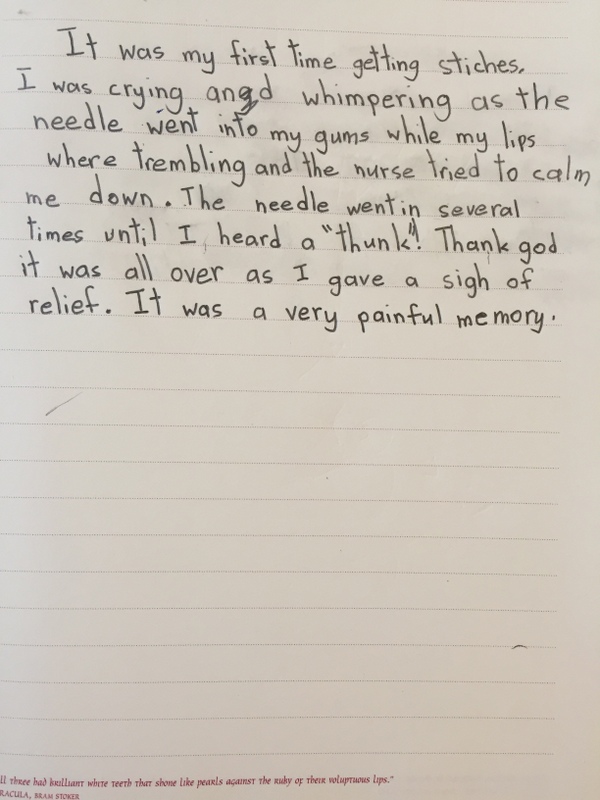 It was my first time getting stiches.
I was crying angd whimpering as the
needle went into my gums while my lips
where trembling and the nurse tried to calm
me down. The needle went in several
times until I heard a "thunk"! Thank god
it was all over as I gave a sigh of
relief. It was a very painful memory.
ll three had brilliant white teeth that shone like pearls against the ruby of their voluptuous lips."
RACULA, BRAM STOKER